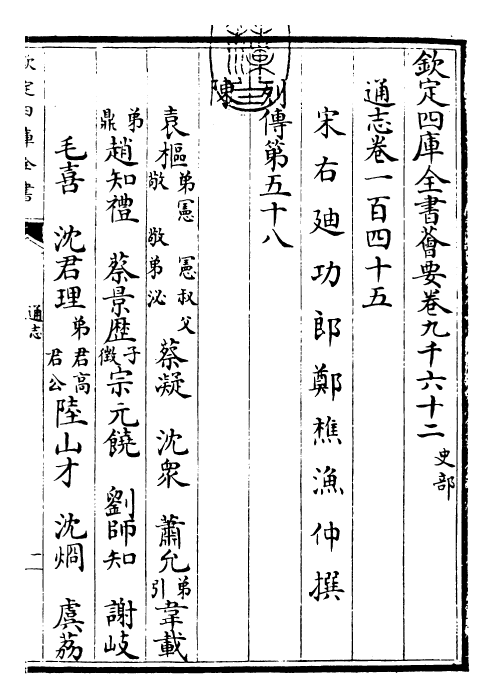 欽定四庫全書薈要卷九千六十二 史部
通志卷一百四十五
宋右廸功郎鄭樵漁仲撰
列傳第五十八
陳
袁樞 弟憲 憲叔父敬 敬弟泌 蔡凝 沈衆 蕭允 弟引 韋載
弟鼎 趙知禮 蔡景歴 子徵 宗元饒 劉師知 謝岐
毛喜 沈君理 弟君高 君公 陸山才 沈烱 虞荔
欽定四庫全書
通志
一